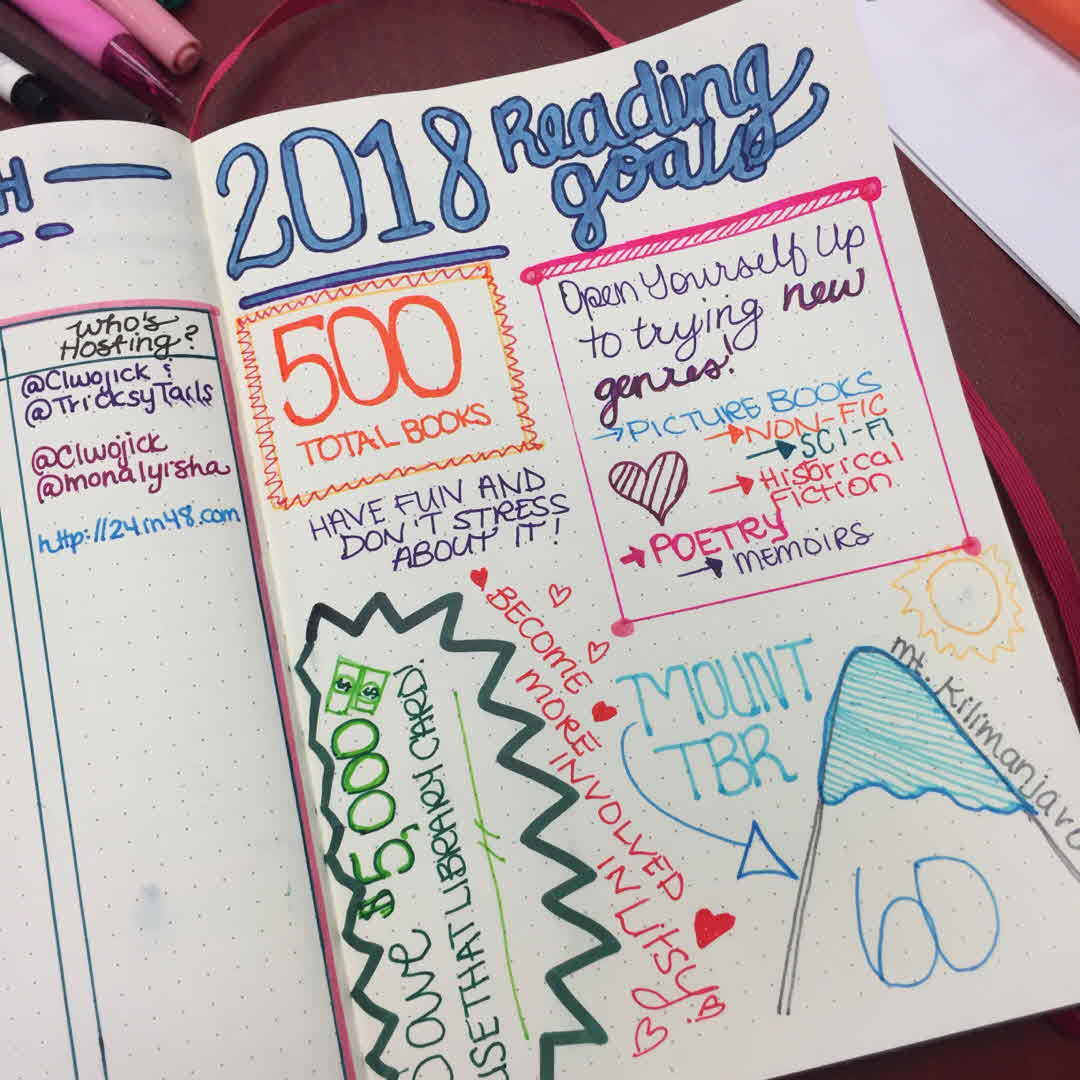 H
Who's
Hosting?
@Clwojick &
@TricksyTails
@Clwojick
@monalyisha
http://24in48.com
2018 Reading
goals
500
TOTAL BOOKS
HAVE FUN AND
DON'T STRESS
ABOUT IT!
Open Yourself Up
to trying new
genres!
→PICTURE BOOKS
→NON-FIC
→SCI-FI
→Historical
Fiction
→POETRY
→MEMOIRS
$ $
Save $5,000
USE THAT LIBRARY CARD!
BECOME
MORE
INVOLVED
IN Litsy
MOUNT
TBR
mt. Kilimanjaro
60